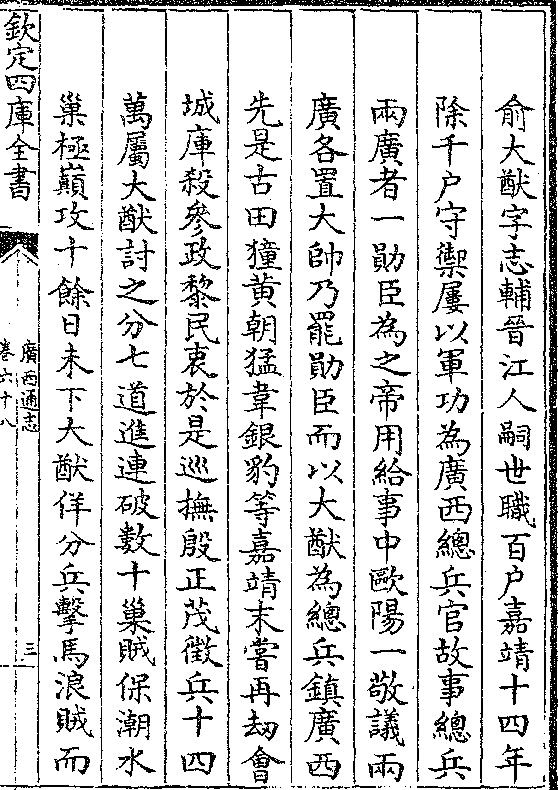 俞大猷字志輔晉江人嗣世職百户嘉靖十四年
除千户守禦屢以軍功為廣西總兵官故事總兵
兩廣者一勛臣為之帝用給事中歐陽一敬議兩
廣各置大帥乃罷勛臣而以大猷為總兵鎮廣西
先是古田獞黄朝猛韋銀豹等嘉靖末嘗再刼會
城庫殺參政黎民衷於是巡撫殷正茂徵兵十四
萬屬大猷討之分七道進連破數十巢賊保潮水
巢極巔攻十餘日未下大猷佯分兵擊馬浪賊而
欽定四庫全書
廣西通志
卷六十八
三